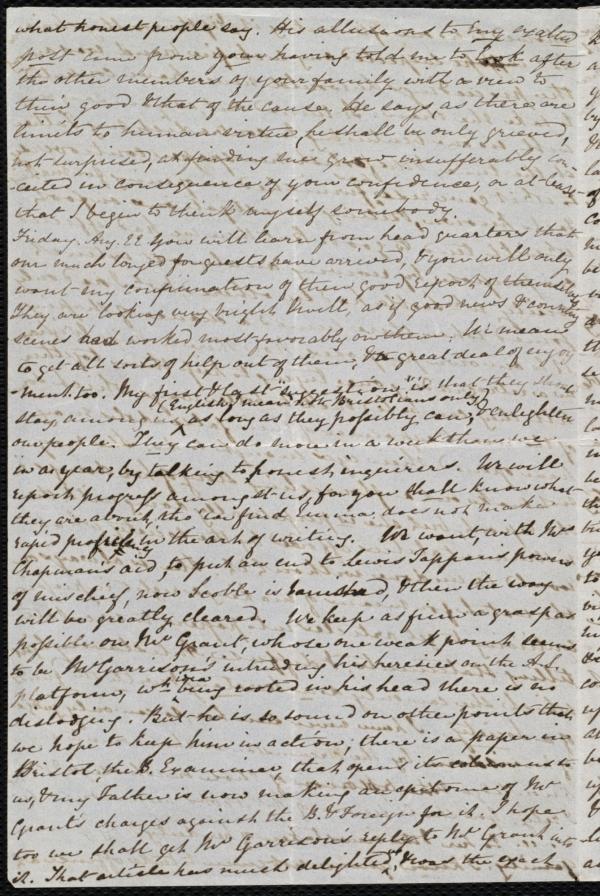 what honest people say. His allusions to my exalted
post came from your having told me to look after
the other members of your family with a view to
their good & that of the cause. He says, as there are
limits to human virtue, he shall be only grieved,
not surprised, at finding me grow insufferably con-
-ceited in consequence of your confidence, or at least
that I begin to think myself somebody.
Friday. Aug. 22 You will learn from head quarters that
our much longed for guests have arrived, & you will only
want my confirmation of their good report of themselves
They are looking very bright & well, as if good news & country
scenes had worked most favorably on them. We mean
to get all sorts of help out of them, & a great deal of enjoy
-ment too. My first & last "suggestion" is that they should
(English, I mean, not Bristolians only)
stay among us as long as they possibly can, & enlighten
our people. They can do more in a week than we
in a year, by talking to honest inquirers. We will
report progress amongst us, for you shall know what
they are about, tho' we find Emma does not make
rapid progress in the art of writing. We want, with Mrs
Chapman's aid, to put an end to Lewis Tappan's powers
of mischief, now Scoble is vanished, & then the way
will be greatly cleared. We keep as firm a grasp as
possible on Mr Grant, whose one weak point seems
to be Mr Garrison's intruding his heresies on the A.S.
platform, wh idea being rooted in his head there is no
dislodging. But he is so sound on other points that
we hope to keep him in action, there is a paper in
Bristol, the B. Examiner, that opens its columns to
us, & my Father is now making an epitome of Mr
Grant's charges against the B. & Foreign for it. I hope
too we shall get Mr Garrison's reply to Mr Grant into
it. That article has much delighted, & was the exact